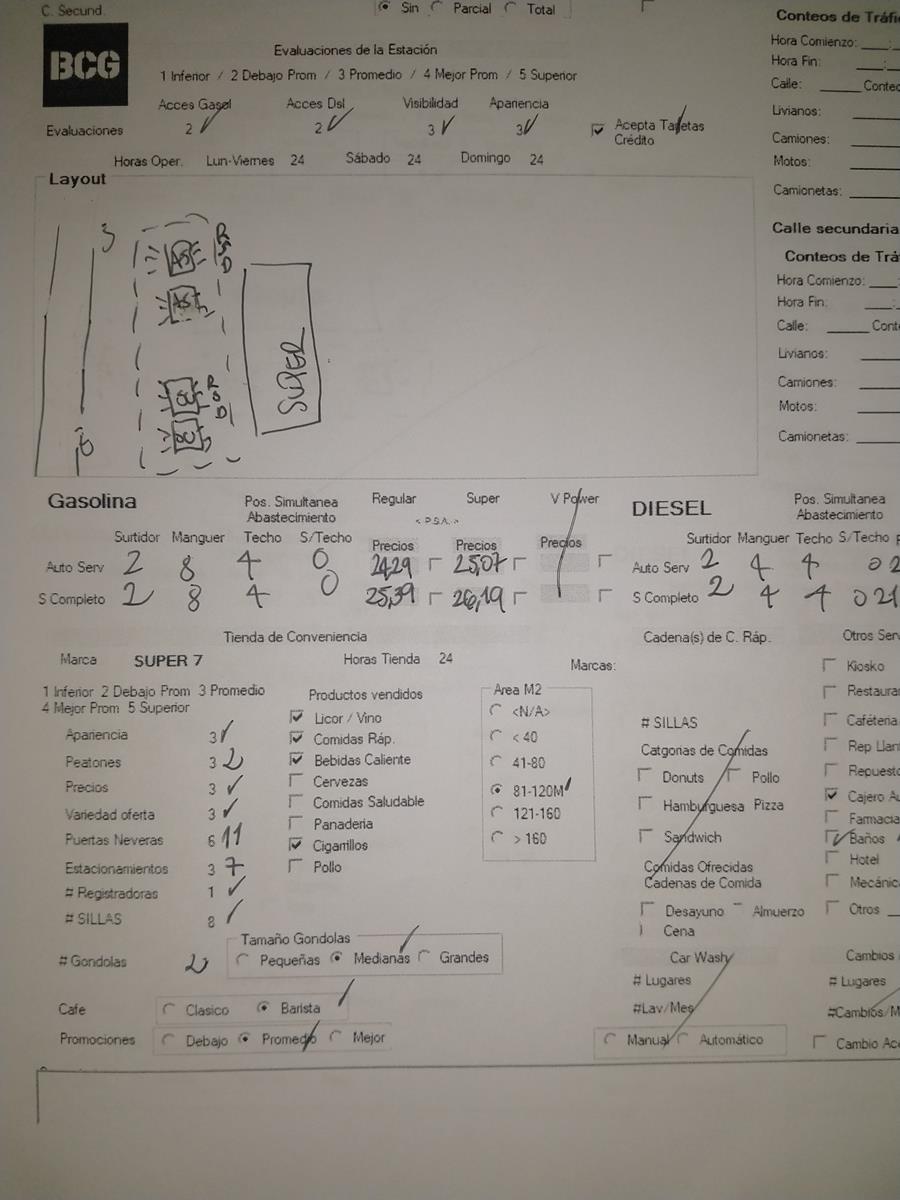 C. Secund.
Sin Parcial Total
BCG
Evaluaciones de la Estación
1 Inferior / 2 Debajo Prom / 3 Promedio / 4 Mejor Prom / 5 Superior
Acces Gasol Acces Dsl Visibilidad Apariencia
Evaluaciones 2 2 3 3 Acepta Tarjetas
Crédito
Horas Oper. Lun-Viernes 24 Sábado 24 Domingo 24
Conteos de Tráfi
Hora Comienzo: ___:
Hora Fin: ___:
Calle: ____ Contec
Livianos:
Camiones:
Motos:
Camionetas:
Calle secundaria
Conteos de Trá
Hora Comienzo:
Hora Fin:
Calle: ____ Cont
Livianos:
Camiones:
Motos:
Camionetas:
Layout
3
AS
R
S
D
AS
SUPER
SC
R
S
D
SC
Gasolina
Pos. Simultanea
Abastecimiento
Regular Super V Power
< P.S.A. >
Surtidor Manguer Techo S/Techo Precios Precios Precios
Auto Serv 2 8 4 0 24,29 25,07
S Completo 2 8 4 0 25,39 26,19
DIESEL
Pos. Simultanea
Abastecimiento
Surtidor Manguer Techo S/Techo
Auto Serv 2 4 4 0 2
S Completo 2 4 4 0 21
Tienda de Conveniencia
Marca SUPER 7 Horas Tienda 24
1 Inferior 2 Debajo Prom 3 Promedio
4 Mejor Prom 5 Superior
Apariencia 3
Peatones 3 2
Precios 3
Variedad oferta 3
Puertas Neveras 6 11
Estacionamientos 3 7
# Registradoras 1
# SILLAS 8
# Gondolas 2
Productos vendidos
Licor / Vino
Comidas Ráp.
Bebidas Caliente
Cervezas
Comidas Saludable
Panaderia
Cigarrillos
Pollo
Area M2
<N/A>
< 40
41-80
81-120M
121-160
> 160
Tamaño Gondolas
Pequeñas Medianas Grandes
Cafe Clasico Barista
Promociones Debajo Promedio Mejor
Cadena(s) de C. Ráp.
Marcas:
# SILLAS
Catgorias de Comidas
Donuts Pollo
Hamburguesa Pizza
Sandwich
Comidas Ofrecidas
Cadenas de Comida
Desayuno Almuerzo
Cena
Car Wash
# Lugares
#Lav/Mes
Manual Automático
Otros Serv
Kiosko
Restaura
Caféteria
Rep Llant
Repuesto
Cajero Au
Farmacia
Baños
Hotel
Mecánica
Otros
Cambios
# Lugares
#Cambios/M
Cambio Ace